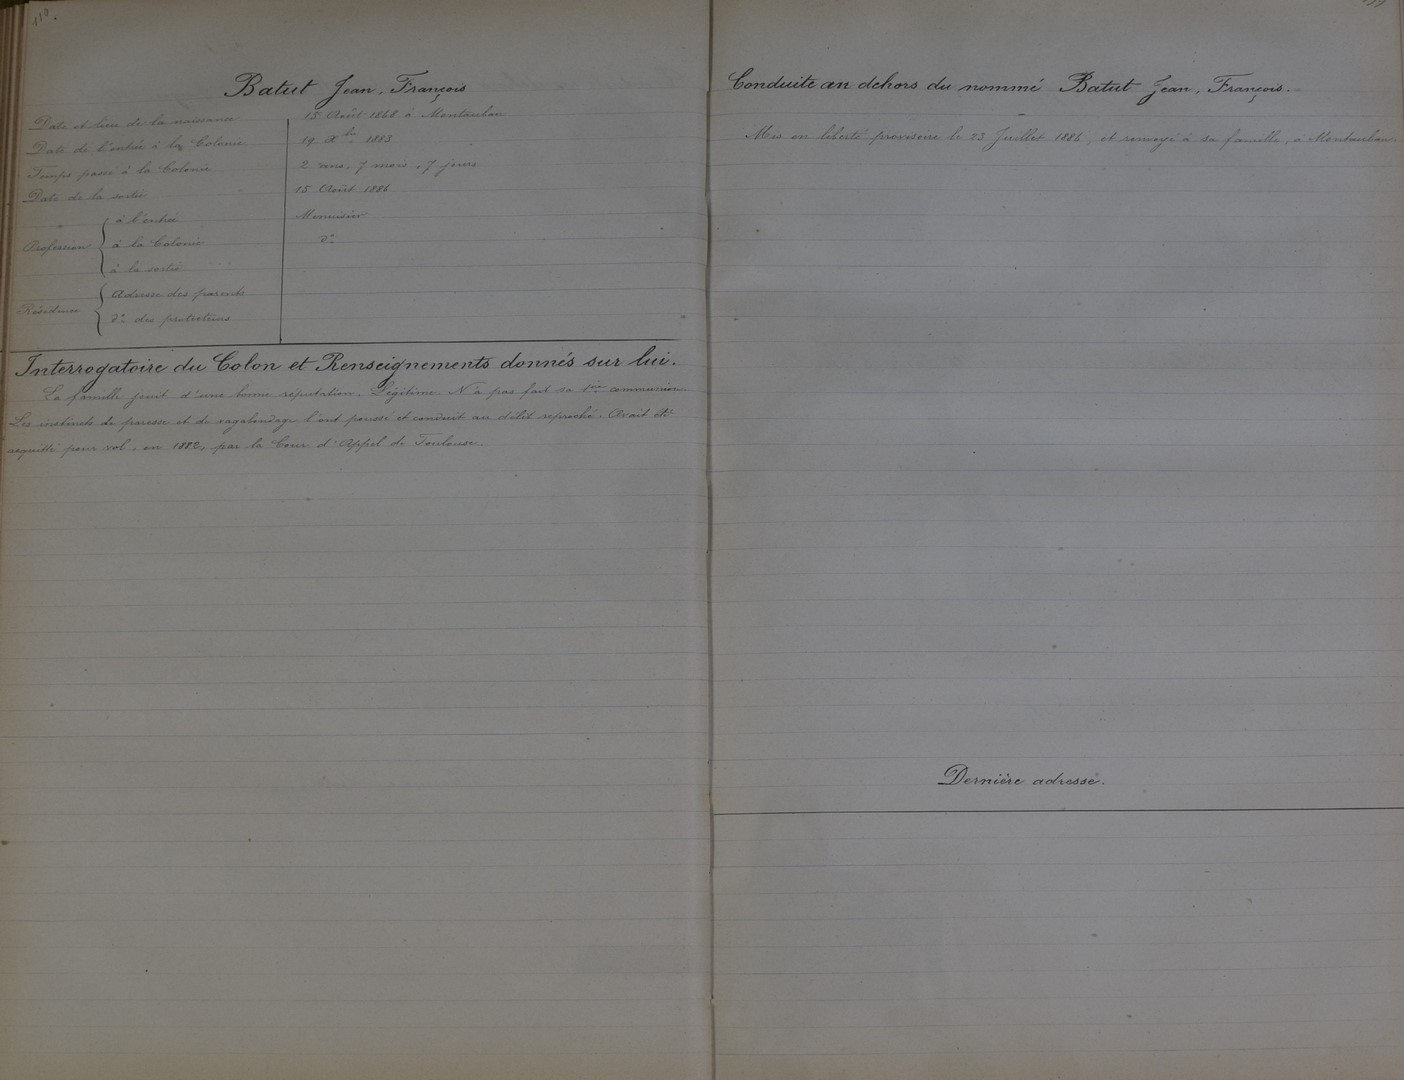 110.
Batut Jean, François
Date et lieu de la naissance 15 Août 1868 à Montauban
Date de l'entrée à la Colonie 19 Xbre 1883
Temps passé à la Colonie 2 ans, 7 mois, 7 jours
Date de la sortie 15 Août 1886
Profession à l'entrée Menuisier
à la Colonie do
à la sortie
Résidence Adresse des parents
do des protecteurs
Interrogatoire du Colon et Renseignements donnés sur lui.
La famille jouit d'une bonne réputation. Légitime. N'a pas fait sa 1ère communion.
Les instincts de paresse et de vagabondage l'ont poussé et conduit au délit reproché. Avait été
acquitté pour vol, en 1882, par la Cour d'Appel de Toulouse.
Conduite au dehors du nommé Batut Jean, François.
Mis en liberté provisoire le 23 Juillet 1886, et renvoyé à sa famille, à Montauban
Dernière adresse.